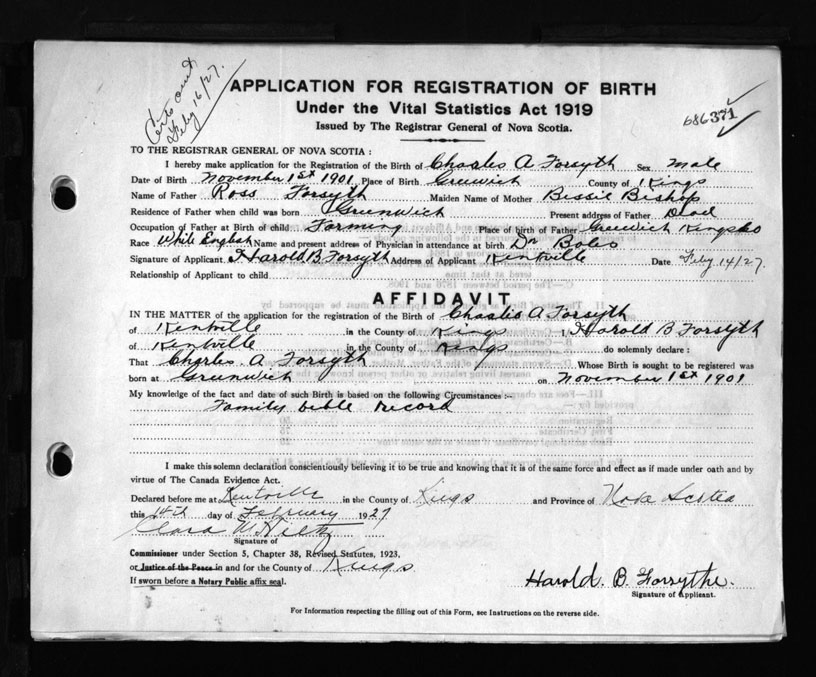 Feby 16/27.
APPLICATION FOR REGISTRATION OF BIRTH
Under the Vital Statistics Act 1919
Issued by The Registrar General of Nova Scotia.
686371
TO THE REGISTRAR GENERAL OF NOVA SCOTIA :
I hereby make application for the Registration of the Birth of Charles A Forsyth Sex Male
Date of Birth November 1st 1901 Place of Birth Greenwich County of Kings
Name of Father Ross Forsyth Maiden Name of Mother Bessie Bishop
Residence of Father when child was born Greenwich Present address of Father Dead
Occupation of Father at Birth of child. Farming Place of birth of Father Greenwich Kings Co
Race White English Name and present address of Physician in attendance at birth Dr
Signature of Applicant. Harold B Forsyth Address of Applicant Kentville Date Feby 14/27.
Relationship of Applicant to child
AFFIDAVIT
IN THE MATTER of the application for the registration of the Birth of Charles A Forsyth
of Kentville in the County of Kings I, Harold B Forsyth
of Kentville in the County of Kings do solemnly declare :
That Charles A Forsyth Whose Birth is sought to be registered was
born at Greenwich on November 1st 1901
My knowledge of the fact and date of such Birth is based on the following Circumstances :-
Family bible record
I make this solemn declaration conscientiously believing it to be true and knowing that it is of the same force and effect as if made under oath and by
virtue of The Canada Evidence Act.
Declared before me at Kentville in the County of Kings and Province of Nova Scotia
this 14th day of February 1927
Clara M.
Signature of
Commissioner under Section 5, Chapter 38, Revised Statutes, 1923.
or Justice of the Peace in and for the County of Kings
If sworn before a Notary Public affix seal.
Harold. B. Forsythe.
Signature of Applicant.
For Information respecting the filling out of this Form, see Instructions on the reverse side.